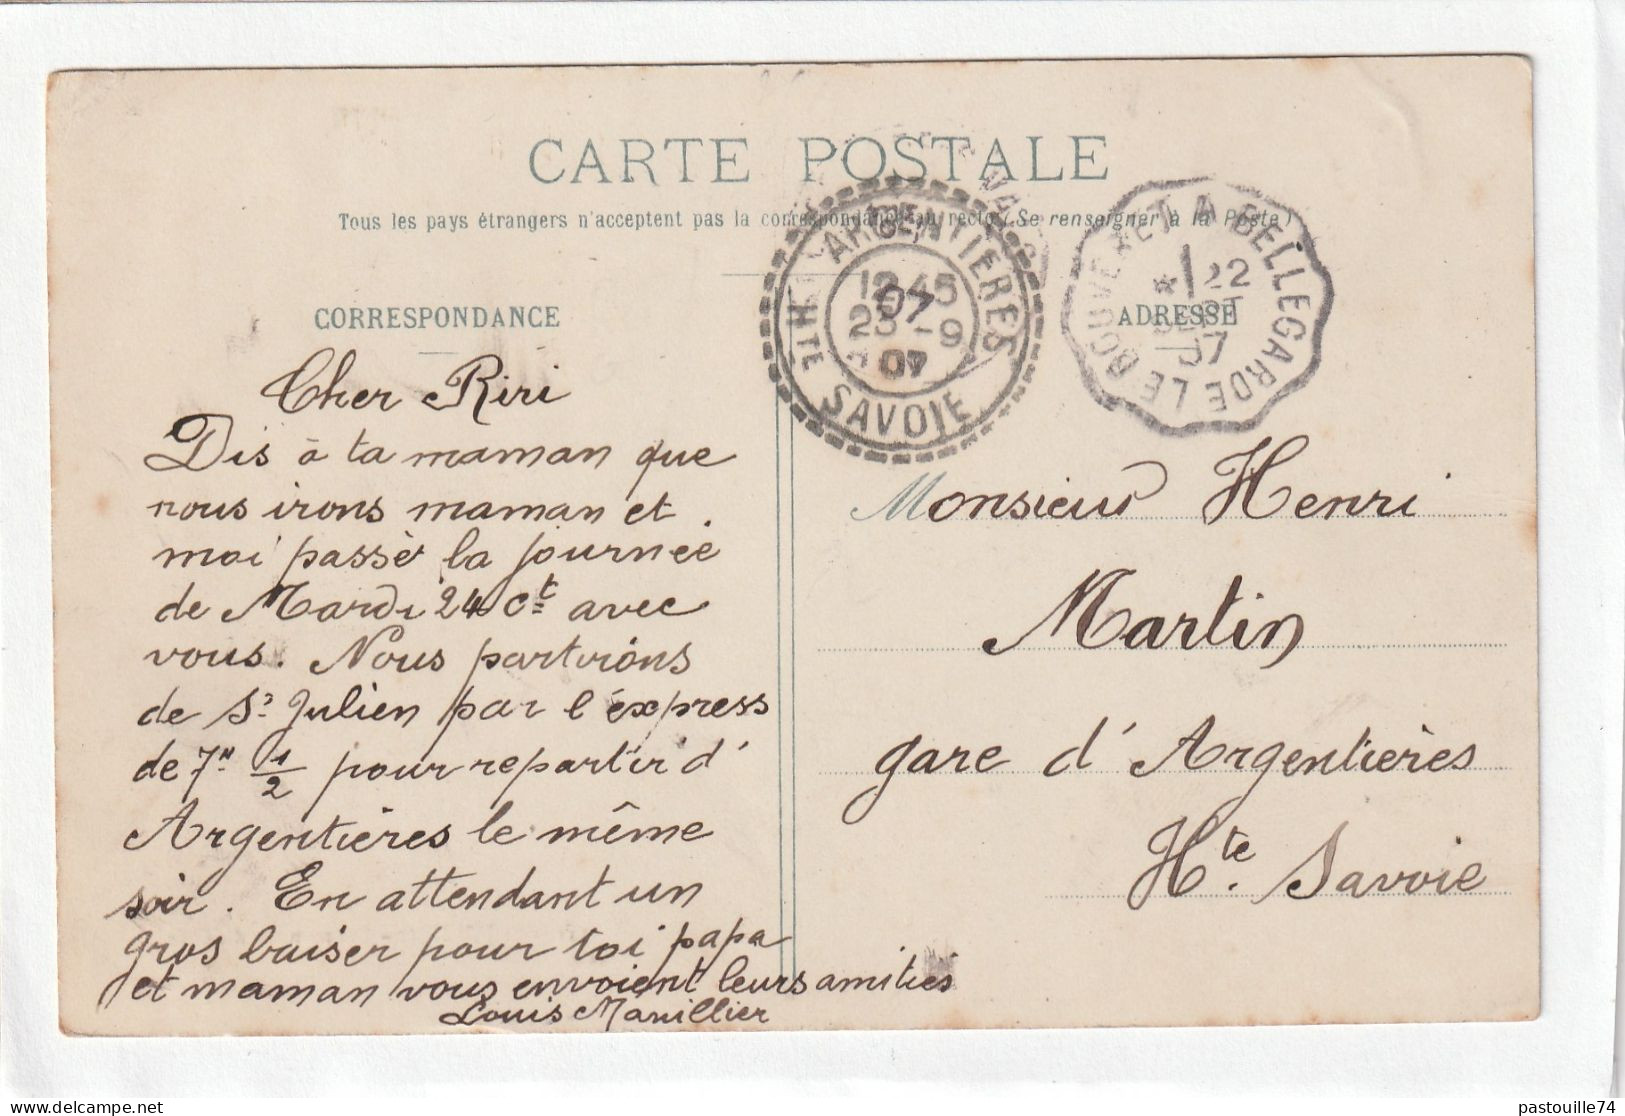 CARTE POSTALE
Tous les pays étrangers n'acceptent pas la correspondance au recto (Se renseigner à la Poste)
ARGENTIERES
12 45
23 - 9
07
HTE SAVOIE
LE BOUVERET A BELLEGARDE
22
SEPT
07
CORRESPONDANCE
ADRESSE
Cher Riri
Dis à ta maman que
nous irons maman et
moi passer la journée
de Mardi 24 ct avec
vous. Nous partirons
de St Julien par l'express
de 7h 1/2 pour repartir d'
Argentières le même
soir. En attendant un
gros baiser pour toi papa
et maman vous envoient leurs amitiés
Louis
Monsieur Henri
Martin
gare d'Argentières
Hte. Savoie
pastouille74